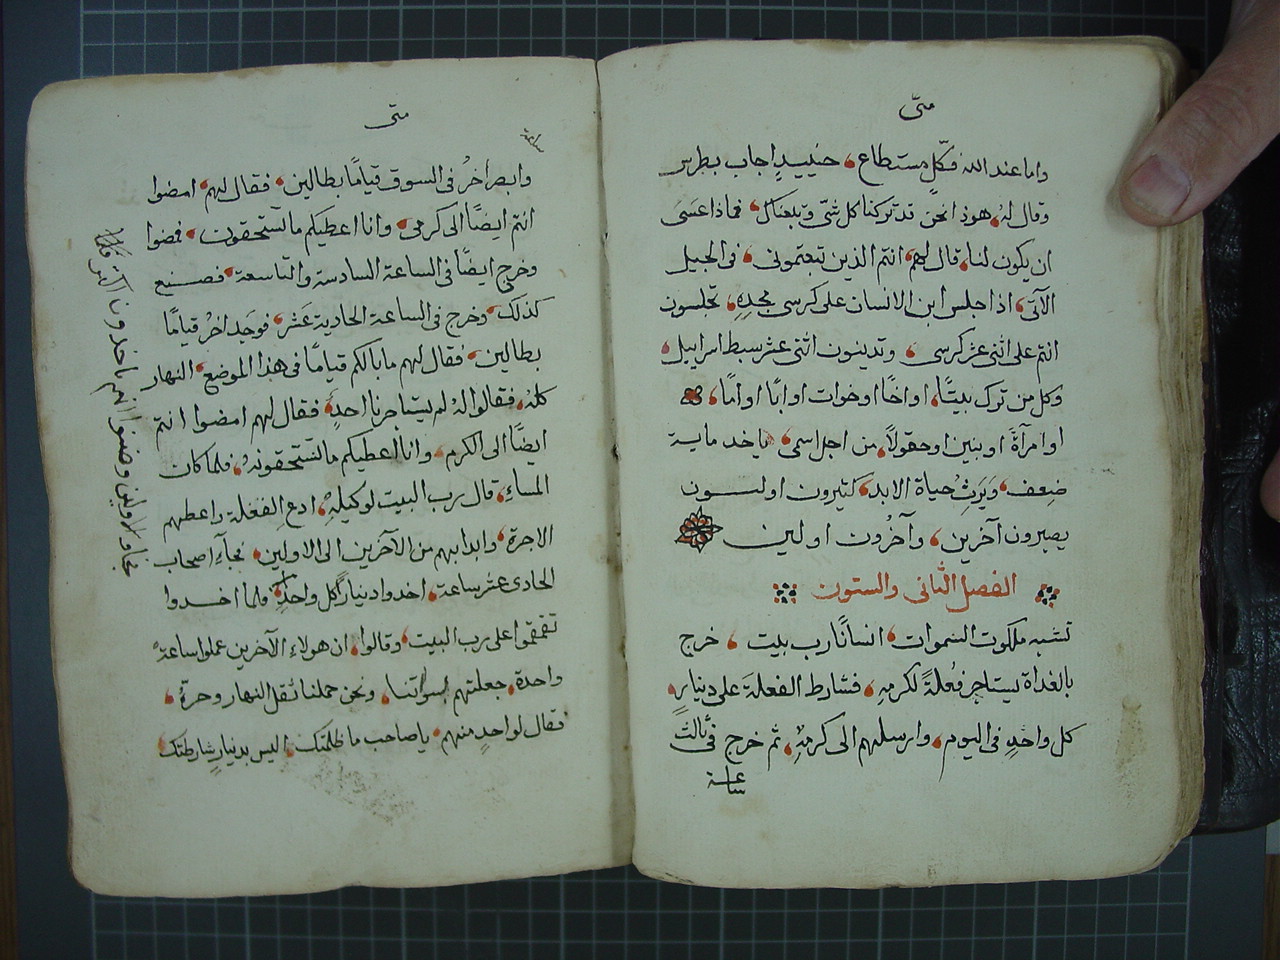 متّى
واما عند الله فكلٍ مستطاع، حينيدٍ اجاب بطرس
وقال لهُ، هوذا نحن قد تركنا كل شىّ وتبعناك، فماذا عَسَى
ان يكون لنا، قال لهم، انتم الذين تبعتمونى، فى الجيل
الآتى، اذا جلس ابن الانسان على كرسى مجدهِ، تجلسون
انتم على اثنى عشر كرسى، وتدينون اثنى عشر سبط اسراييل،
وكل من ترك بيتًا، او اخًا او خوات او ابًا او امًا،
او امرآةً او بنين او حقولاً، من اجل اسمى، ياخد ماية
ضِعف، ويَرِثُ حياة الابد، كتيرون اولـون
يصيرون آخرين، وآخرُون اولين
الفصل الثانى والستون
تشبه ملكوت السموات، انسانًا رب بيت، خرج
بالغداة يستاجر فُعلةً لكرمهِ، فشارط الفعلةَ على دينارٍ،
كل واحدٍ فى اليوم، وارسلهم الى كرمهِ، ثم خرج فى ثالثَ
ساعة
متى
ساعة
وابصر آخرُ فى السوق قيامًا بطالين، فقال لهم، امضوا
انتم ايضًا الى كرمى، وانا اعطيكم ما تستحقون، فمضوا
وخرج ايضًا فى الساعة السادسة والتاسعة، فصنع
كذلك، وخرج فى الساعة الحادية عَشر، فوجد اخرُ قيامًا
بطالين، فقال لهم ما بالكم قيامًا فى هذا الموضع، النهار
كلهُ، فقالوا لهُ لم يستاجرنا احدٍ، فقال لهم امضوا انتم
ايضًا الى الكرم، وانا اعطيكم ما تستحقونهُ، فلما كان
المساءِ، قال رب البيت لوكيلهِ، ادع الفعلة واعطهم
الاجرة، وابدا بهم من الآخرين الى الاولين، فجآء اصحاب
الحادى عشر ساعة، اخدوا دينارًا كل واحدٍ، ولما اخـدوا
تقمقموا على رب البيت، وقالوا، ان هولاءِ الآخرين عملوا ساعةً
واحدة، جعلتهم اسواتنا، ونحن حملنا ثقل النهار وحرهُ،
فقال لواحدٍ منهم، ياصاحب ما ظلمتك، اليس بدينارٍ شارطتك
فجاو الاولين وضنوا انهم ياخدونا اكتر فلما